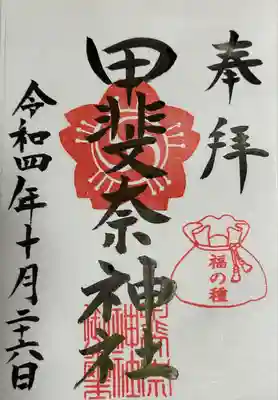 奉拝
甲斐奈神社
福の種
令和四年十月二十六日